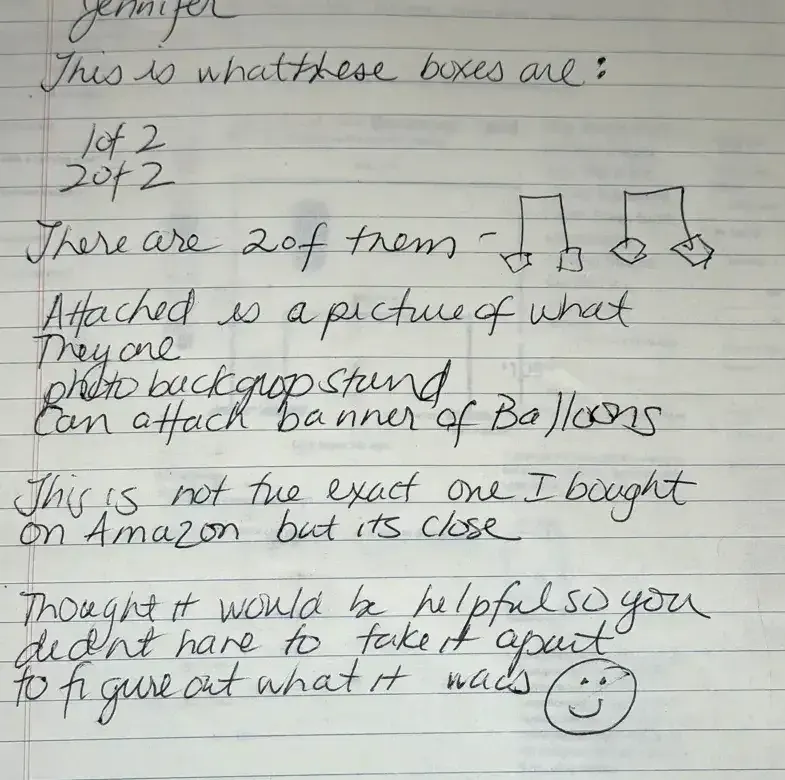 Jennifer
This is what these boxes are:
1 of 2
2 of 2
There are 2 of them -
Attached is a picture of what
They are
photo backgrop stand
Can attach banner of Balloons
This is not the exact one I bought
on Amazon but its close
Thought it would be helpful so you
didn't have to take it apart
to figure out what it was